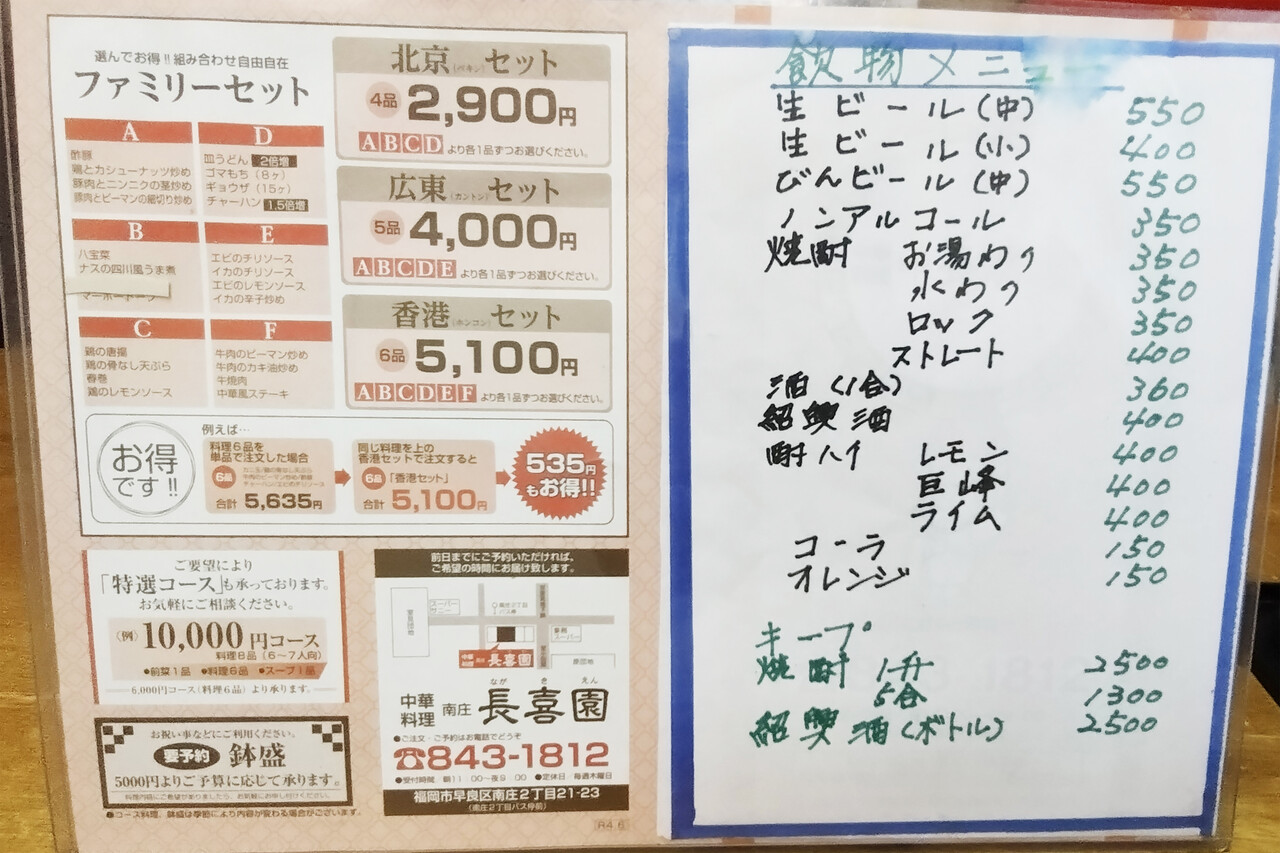 選んでお得!!組み合わせ自由自在
ファミリーセット
A
酢豚
鶏とカシューナッツ炒め
豚肉とニンニクの茎炒め
豚肉とピーマンの細切り炒め
D
皿うどん 2倍増
ゴマもち（8ヶ）
ギョウザ（15ヶ）
チャーハン 1.5倍増
B
八宝菜
ナスの四川風うま煮
E
エビのチリソース
イカのチリソース
エビのレモンソース
イカの辛子炒め
C
鶏の唐揚
鶏の骨なし天ぷら
春巻
鶏のレモンソース
F
牛肉のピーマン炒め
牛肉のカキ油炒め
牛焼肉
中華風ステーキ
北京（ペキン）セット
4品 2,900円
ABCD より各1品ずつお選びください。
広東（カントン）セット
5品 4,000円
ABCDE より各1品ずつお選びください。
香港（ホンコン）セット
6品 5,100円
ABCDEF より各1品ずつお選びください。
お得です!!
例えば…
料理6品を
単品で注文した場合
6品
合計 5,635円
同じ料理を上の
香港セットで注文すると
6品 「香港セット」
合計 5,100円
535円
もお得!!
ご要望により
「特選コース」も承っております。
お気軽にご相談ください。
〈例〉10,000円コース
料理8品（6〜7人向）
●前菜1品 ●料理6品 ●スープ1品
6,000円コース（料理6品）より承ります。
お祝い事などにご利用ください。
要予約 鉢盛
5000円よりご予算に応じて承ります。
料理内容にご希望がありましたら、お気軽にお申し付けください。
●コース料理、鉢盛は季節により内容が変わる場合がございます。
前日までにご予約いただければ、
ご希望の時間にお届け致します。
スーパー
サニー
南庄2丁目
バス停
業務
スーパー
原団地
室見団地
中華料理 南庄 長喜園
中華
料理 南庄 長喜園
なが き えん
●ご注文・ご予約はお電話でどうぞ
☎843-1812
●受付時間／朝11：00〜夜9：00 ●定休日／毎週木曜日
福岡市早良区南庄2丁目21-23
（南庄2丁目バス停前）
R4.6
飲物メニュ
生ビール(中) 550
生ビール(小) 400
びんビール(中) 550
ノンアルコール 350
焼酎 お湯わり 350
水わり 350
ロック 350
ストレート 400
酒(1合) 360
紹興酒 400
酎ハイ レモン 400
巨峰 400
ライム 400
コーラ 150
オレンジ 150
キープ
焼酎 1升 2500
5合 1300
紹興酒(ボトル) 2500